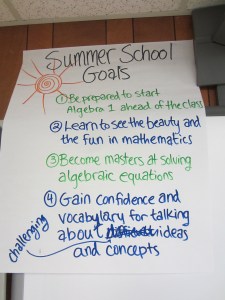 Summer School
Goals
① Be prepared to start
Algebra 1 ahead of the class
② Learn to see the beauty and
the fun in mathematics
③ Become masters at solving
algebraic equations
④ Gain confidence and
vocabulary for talking
about ideas
and concepts
challenging